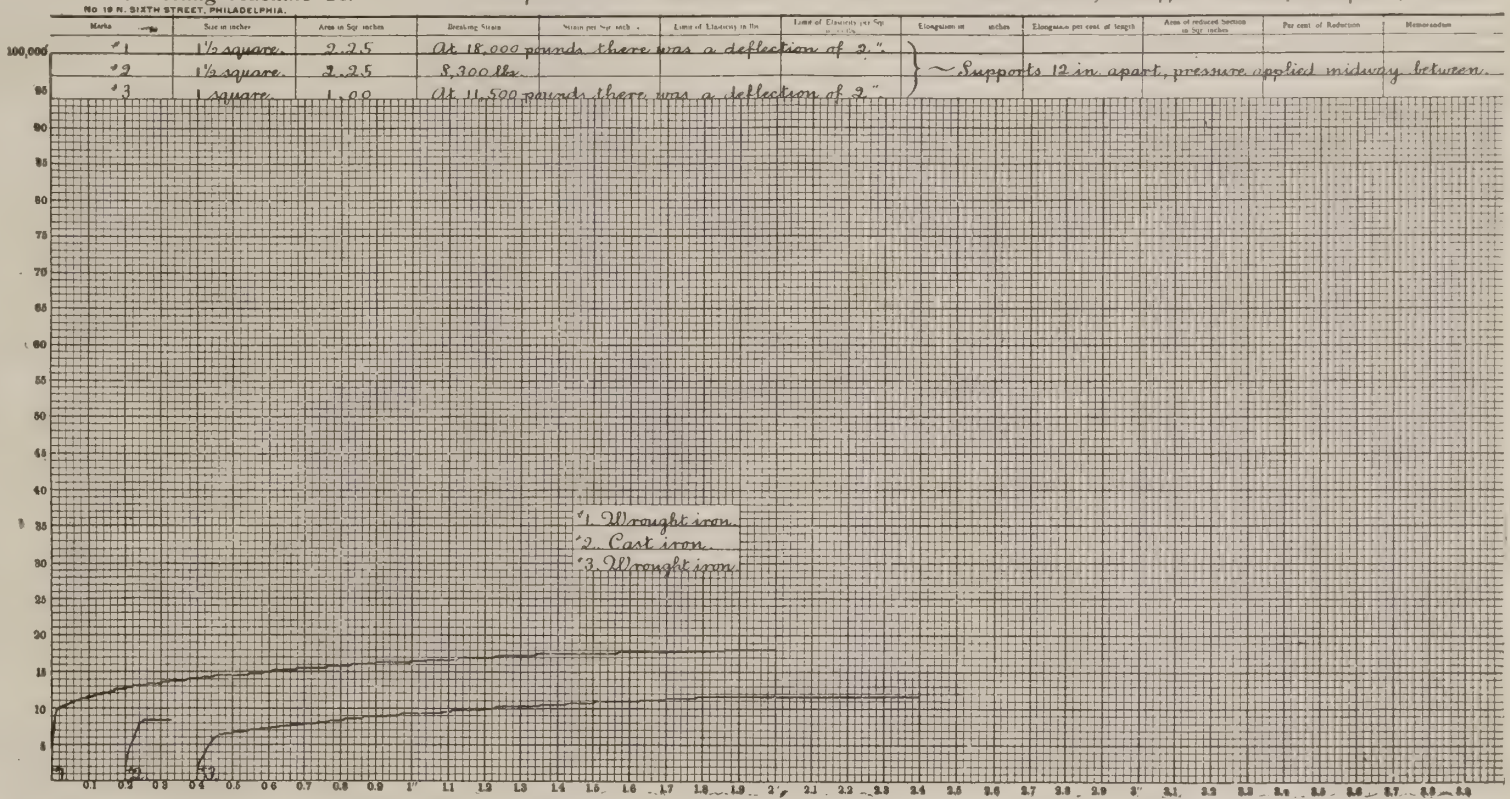 No 19 N. SIXTH STREET, PHILADELPHIA.
Marks Size in inches Area in Sqr inches Breaking Strain Strain per Sqr inch Limit of Elasticity in lbs Limit of Elasticity per Sqr Elongation in inches Elongation per cent. of length Area of reduced Section in Sqr inches Per cent. of Reduction Memorandum
#1 1½ square. 2.25 At 18,000 pounds there was a deflection of 2".
#2 1½ square. 2.25 8,300 lbs. ~ Supports 12 in. apart, pressure applied midway between.
#3 1 square. 1.00 At 11,500 pounds there was a deflection of 2".
100,000
95
90
85
80
75
70
65
60
55
50
45
40
#1. Wrought iron.
35
#2. Cast iron.
#3. Wrought iron.
30
25
20
15
10
5
#2. #3.
0.1 0.2 0.3 0.4 0.5 0.6 0.7 0.8 0.9 1" 1.1 1.2 1.3 1.4 1.5 1.6 1.7 1.8 1.9 2" 2.1 2.2 2.3 2.4 2.5 2.6 2.7 2.8 2.9 3" 3.1 3.2 3.3 3.4 3.5 3.6 3.7 3.8